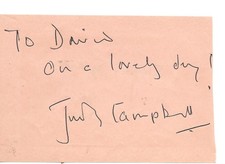 To David
On a lovely day!
Judy Campbell